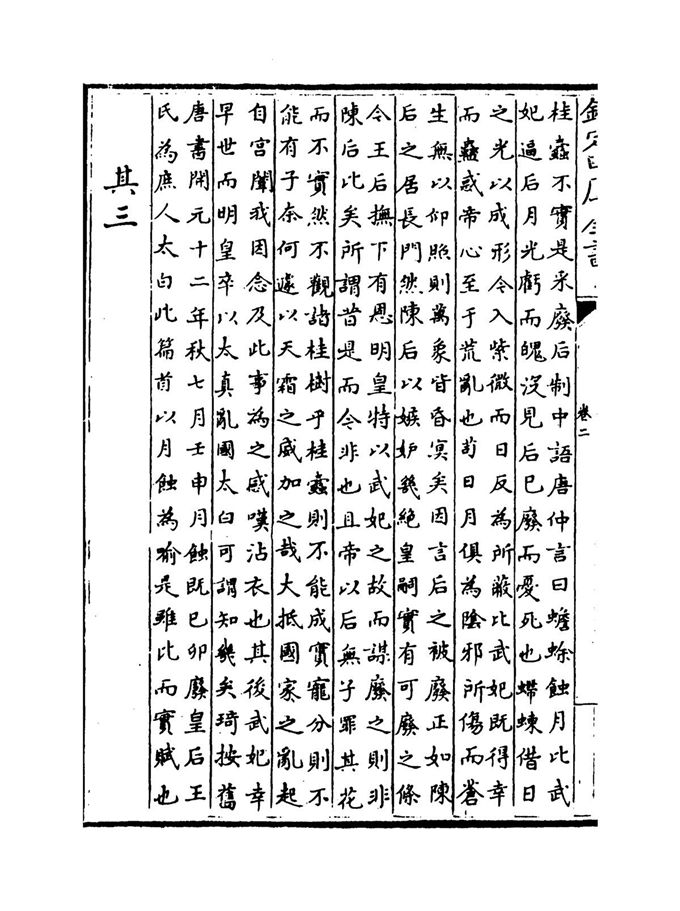 欽定四庫全書
卷二
桂蠹不實是采廢后制中語唐仲言曰蟾蜍蝕月比武
妃逼后月光虧而魄沒見后已廢而憂死也螮蝀借日
之光以成形令入紫微而日反為所蔽比武妃既得幸
而蠱惑帝心至于荒亂也茍日月俱為陰邪所傷而蒼
生無以仰照則萬象皆昏冥矣因言后之被廢正如陳
后之居長門然陳后以嫉妒幾絕皇嗣實有可廢之條
令王后撫下有恩明皇特以武妃之故而謀廢之則非
陳后比矣所謂昔是而今非也且帝以后無子罪其花
而不實然不觀諸桂樹乎桂蠹則不能成實寵分則不
能有子奈何遽以天霜之威加之哉大抵國家之亂起
自宮闈我因念及此事為之感嘆沾衣也其後武妃幸
早世而明皇卒以太真亂國太白可謂知幾矣琦按舊
唐書開元十二年秋七月壬申月蝕既已卯廢皇后王
氏為庶人太白此篇首以月蝕為喻是雖比而實賦也
其三